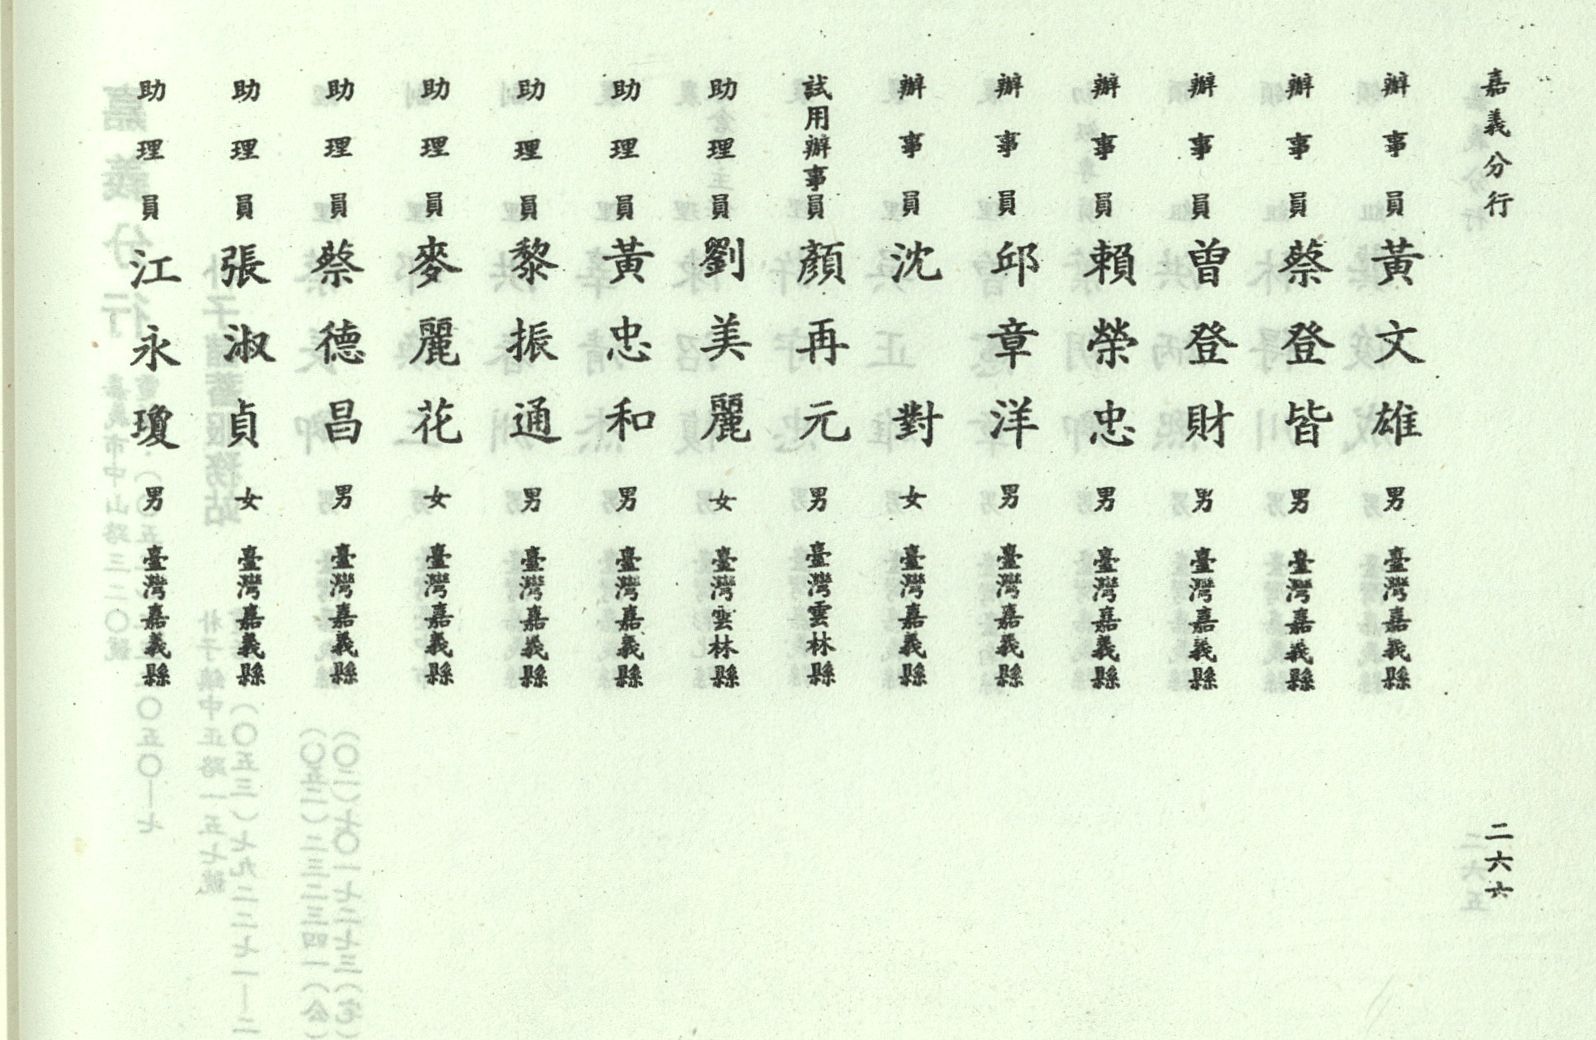 嘉義分行
辦事員黃文雄男臺灣嘉義縣
辦事員蔡登皆男臺灣嘉義縣
辦事員曾登財男臺灣嘉義縣
辦事員賴榮忠男臺灣嘉義縣
辦事員邱章洋男臺灣嘉義縣
辦事員沈對女臺灣嘉義縣
試用辦事員顏再元男臺灣雲林縣
助理員劉美麗女臺灣雲林縣
助理員黃忠和男臺灣嘉義縣
助理員黎振通男臺灣嘉義縣
助理員麥麗花女臺灣嘉義縣
助理員蔡德昌男臺灣嘉義縣
助理員張淑貞女臺灣嘉義縣
助理員江永瓊男臺灣嘉義縣
二六六